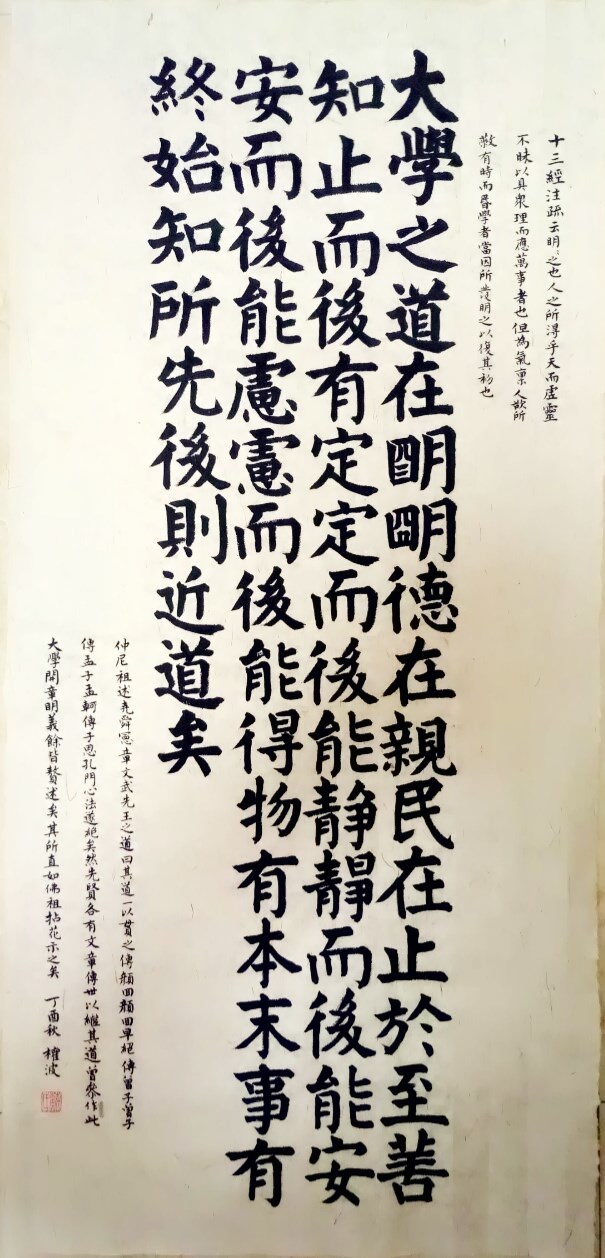 十三經注疏云明之也人之所得乎天而虛靈
不昧以具衆理而應萬事者也但為氣稟人欲所
蔽有時而昏學者當因所發明之以復其初也
大學之道在明明德在親民在止於至善
知止而後有定定而後能靜靜而後能安
安而後能慮慮而後能得物有本末事有
終始知所先後則近道矣
仲尼祖述堯舜憲章文武先王之道曰其道一以貫之傳顏回顏回早絕傳曾子曾子
傳孟子孟軻傳子思孔門心法遂絕矣然先賢各有文章傳世以繼其道曾參作此
大學開章明義餘皆贅述矣其所直如佛祖拈花示之矣 丁酉秋 權波